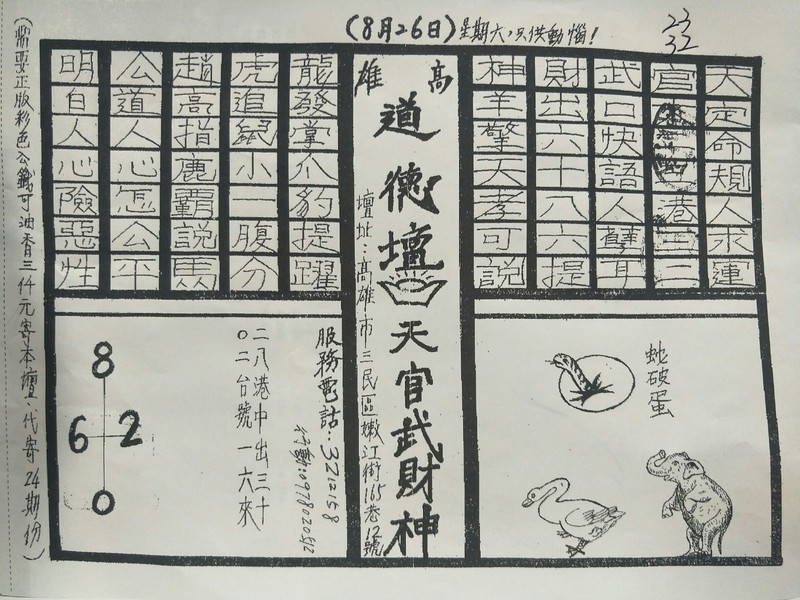 (8月26日)星期六,只供動惱!
23
32
天定命規人求運
武口快語人
財出六十八六提
神羊擎天孝可說
高雄
道德壇
天官武財神
壇址:高雄市三民區嫩江街165巷12號
龍發掌爪豹提躍
虎追鼠小一腹分
趙高指鹿霸說馬
公道人心怎公平
明白人心險惡性
蛇破蛋
服務電話:3212158
行動:0978020512
二八港中出三十
〇二台號一六來
8
6 2
0
(需要正版彩色公籤可油香三仟元寄本壇·代寄24期份)